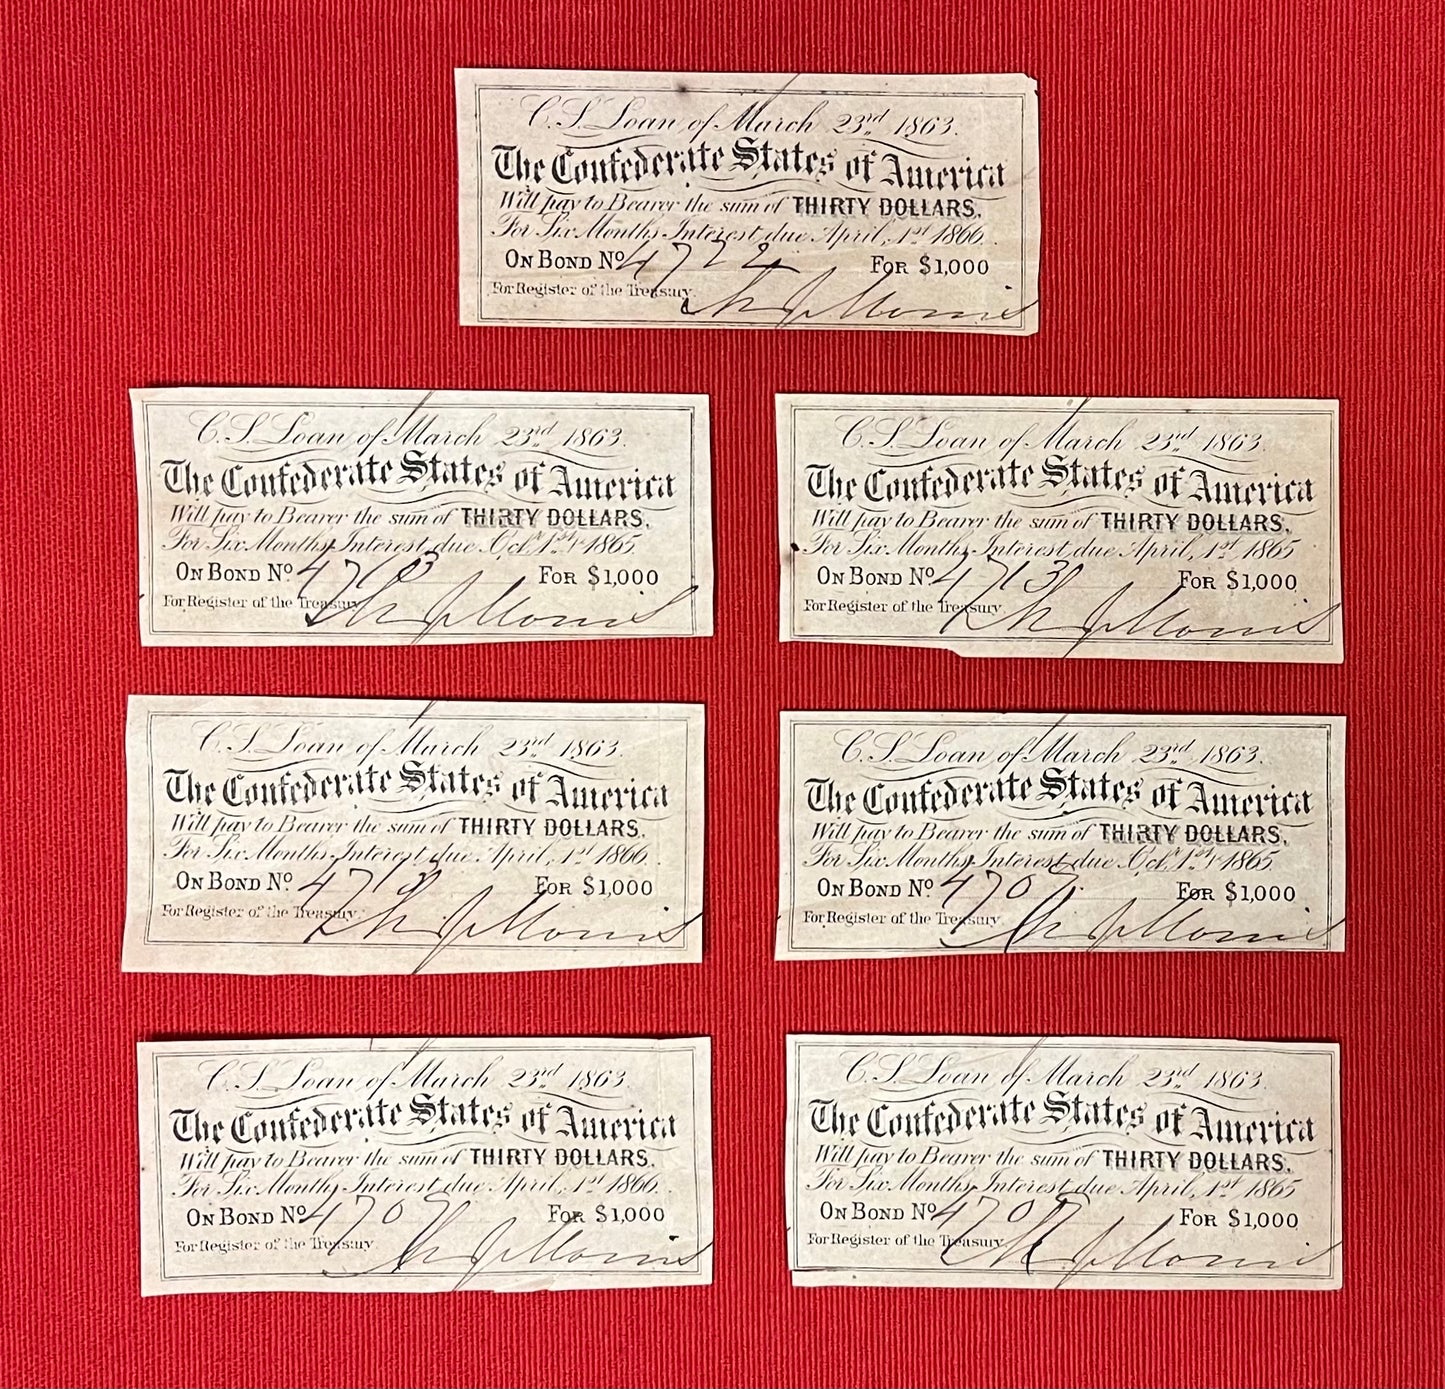 C.S. Loan of March 23rd 1863.
The Confederate States of America
Will pay to Bearer the sum of THIRTY DOLLARS.
For Six Months Interest due April, 1st 1866.
ON BOND No. 4722 FOR $1,000
For Register of the Treasury.
C.S. Loan of March 23rd 1863.
The Confederate States of America
Will pay to Bearer the sum of THIRTY DOLLARS.
For Six Months Interest due Octr. 1st 1865.
ON BOND No. 4713 FOR $1,000
For Register of the Treasury.
C.S. Loan of March 23rd 1863.
The Confederate States of America
Will pay to Bearer the sum of THIRTY DOLLARS.
For Six Months Interest due April, 1st 1865
ON BOND No. 4713 FOR $1,000
For Register of the Treasury.
C.S. Loan of March 23rd 1863.
The Confederate States of America
Will pay to Bearer the sum of THIRTY DOLLARS.
For Six Months Interest due April, 1st 1866.
ON BOND No. FOR $1,000
For Register of the Treasury.
C.S. Loan of March 23rd 1863.
The Confederate States of America
Will pay to Bearer the sum of THIRTY DOLLARS.
For Six Months Interest due Octr. 1st 1865.
ON BOND No. 4707 FOR $1,000
For Register of the Treasury.
C.S. Loan of March 23rd 1863.
The Confederate States of America
Will pay to Bearer the sum of THIRTY DOLLARS.
For Six Months Interest due April, 1st 1866.
ON BOND No. 4707 FOR $1,000
For Register of the Treasury.
C.S. Loan of March 23rd 1863.
The Confederate States of America
Will pay to Bearer the sum of THIRTY DOLLARS.
For Six Months Interest due April, 1st 1865
ON BOND No. 4707 FOR $1,000
For Register of the Treasury.